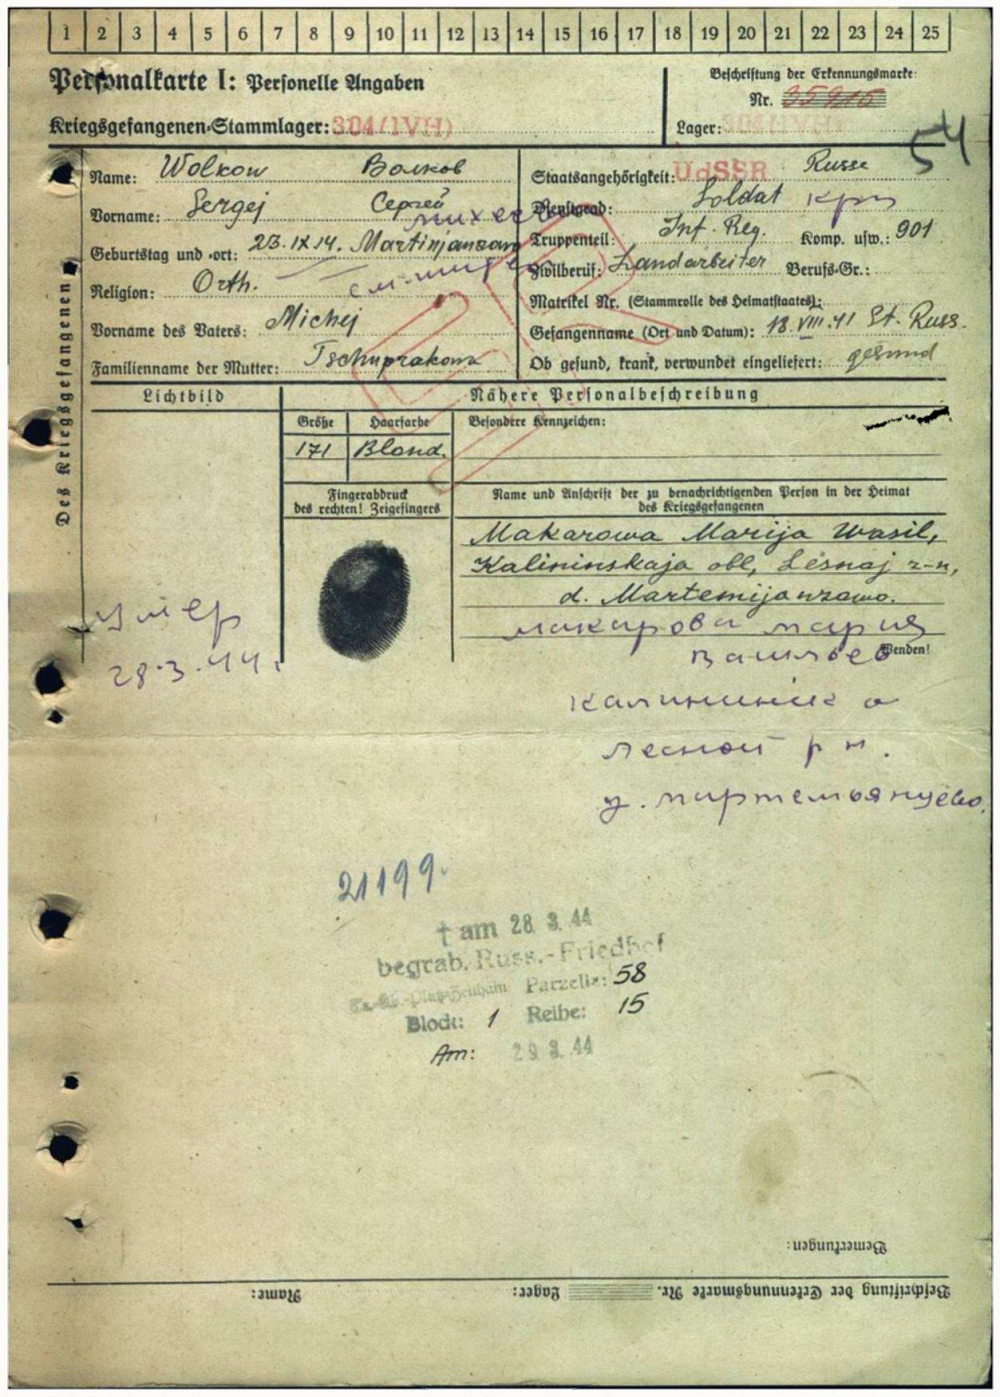 1 2 3 4 5 6 7 8 9 10 11 12 13 14 15 16 17 18 19 20 21 22 23 24 25
Personalkarte I: Personelle Angaben
Kriegsgefangenen-Stammlager: 304 (IV H)
Beschriftung der Erkennungsmarke:
Nr. 35916
Lager: 304 (IV H)
54
Des Kriegsgefangenen
Name: Wolkow Волков
Vorname: Sergej Сергей
Михеев
Geburtstag und -ort: 23.IX.14. Martinjanzowo
Religion: Orth.
Vorname des Vaters: Michej
Familienname der Mutter: Tschuprakowa
Staatsangehörigkeit: UdSSR Russe
Dienstgrad: Soldat кр
Truppenteil: Inf. Reg. Komp. usw.: 901
Zivilberuf: Landarbeiter Berufs-Gr.:
Matrikel Nr. (Stammrolle des Heimatstaates):
Gefangennahme (Ort und Datum): 18.VIII.41 St. Russ.
Ob gesund, krank, verwundet eingeliefert: gesund
Lichtbild
Nähere Personalbeschreibung
Größe Haarfarbe Besondere Kennzeichen:
171 Blond.
Fingerabdruck
des rechten! Zeigefingers
Name und Anschrift der zu benachrichtigenden Person in der Heimat
des Kriegsgefangenen
Makarowa Marija Wasil,
Kalininskaja obl, Lesnaj r-n,
d. Martemijanzowo.
Макарова Мария
Васильев
Wenden!
Калининск о
Лесной р н.
д. Мартемьянцево.
умер
28.3.44г
21199.
† am 28. 3. 44
begrab. Russ.-Friedhof
Parzelle: 58
Block: 1 Reihe: 15
Am: 29. 3. 44
Bemerkungen:
Beschriftung der Erkennungsmarke Nr. Lager: Name: